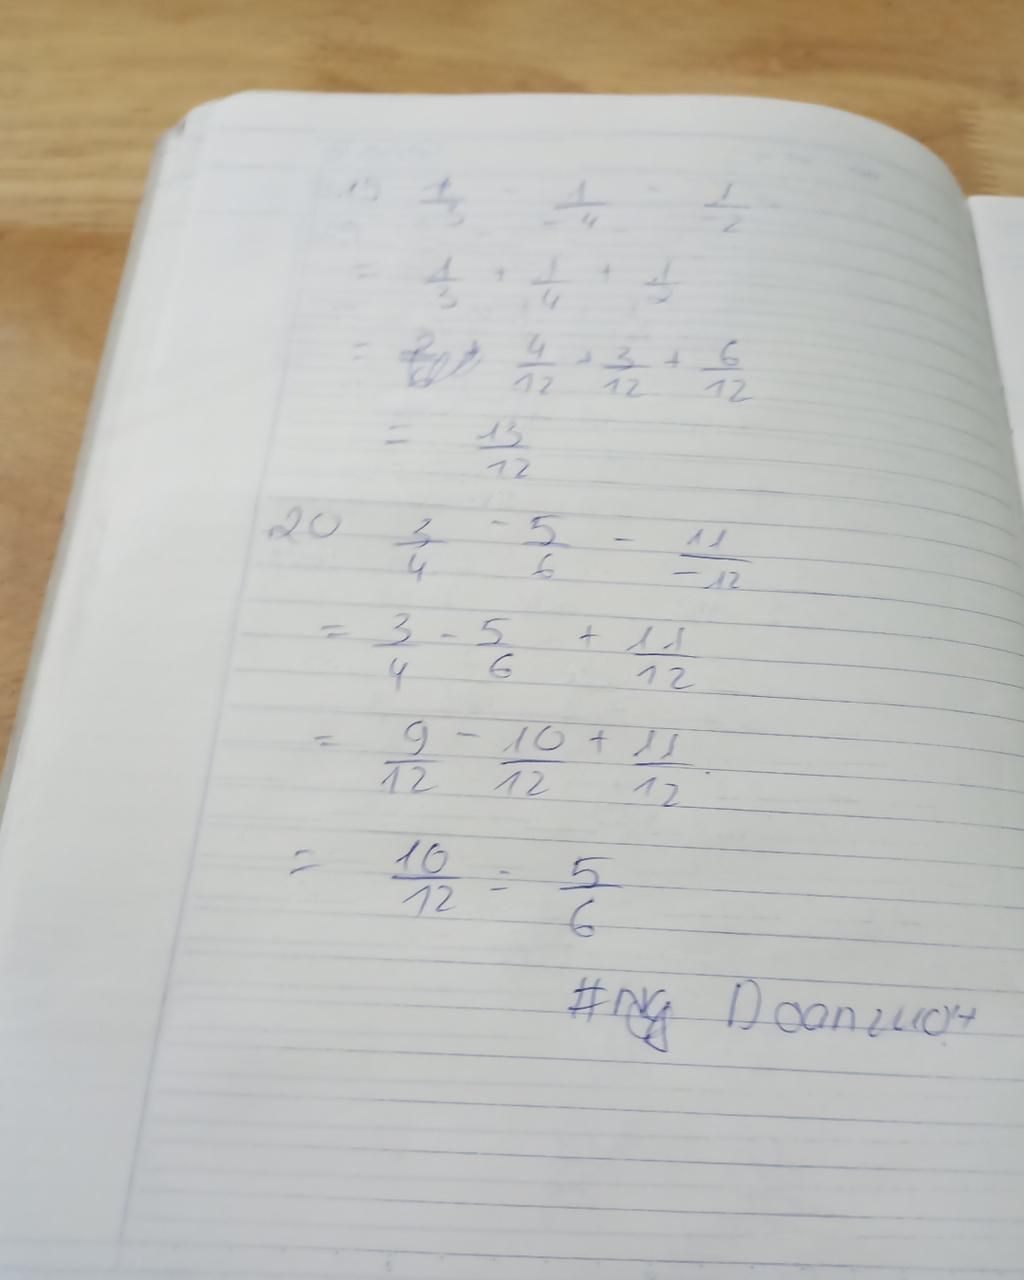 19 1/3 - 1/-4 - 1/-2
= 1/3 + 1/4 + 1/2
= 4/12 + 3/12 + 6/12
= 13/12
20 3/4 - 5/6 - 11/-12
= 3/4 - 5/6 + 11/12
= 9/12 - 10/12 + 11/12
= 10/12 = 5/6